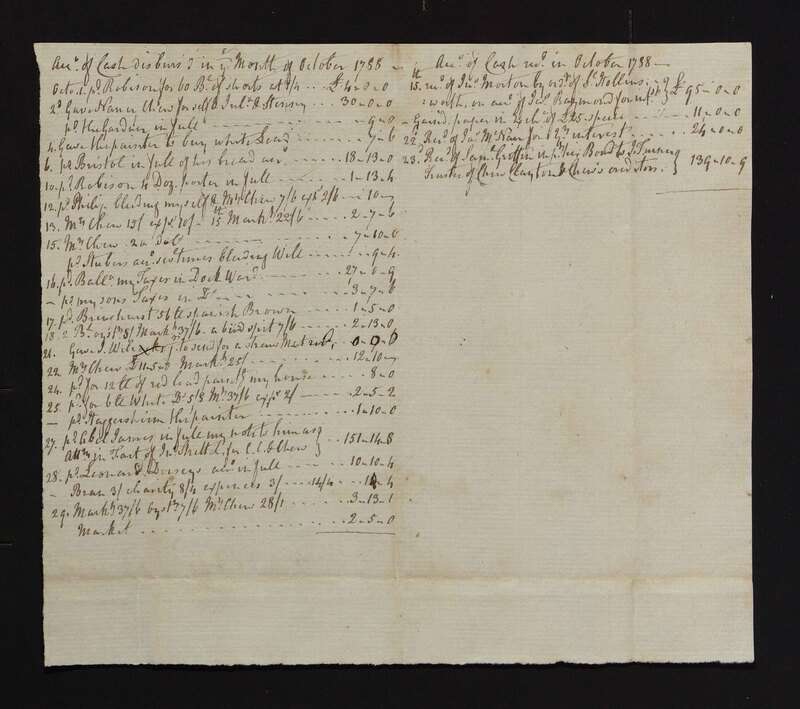 Acc.t of Cash disburs'd in ye Month of October 1788
Octo. 1. pd Robison for 60 Bs. of shorts at 1/4 .. £ 4-0-0
2d Gave Nancy Chew for self & Jul.a & Henny .. 30-0-0
pd. the Gardner in full .. 9-0
4. Gave the painter to buy white Lead .. 7-6
6. pd. Bristol in full of his bread acc. .. 18-13-0
10. pd. Robison 4 Doz. porter in full .. 1-13-4
12. pd. Philip bleeding myself & Mrs Chew 7/6 exps. 2/6 .. 10
13. Mrs Chew 15/ exps. 10/ - 15th Markt. 22/6 .. 2-7-6
15. Mrs Chew 20 dols. .. 7-10-0
pd. Stubers acc. sev. times bleeding Will .. 9-4
16. pd. Balla. my Taxes in Dock Ward .. 27-0-9
- pd. my sons Taxes in Do. .. 3-7-6
17. pd. Bringhurst 56 lb Spanish Brown .. 1-5-0
18. 2 Bs. 8/ Markt. 37/6. a bird spit 7/6 .. 2-13-0
21. Gave Will to send for a straw Matrass, 0-0-0
22. Mrs Chew £11-5-0 Markt. 25/ .. 12-10
24. pd. for 12 lb of red lead paint my house .. 8-0
25. pd. for 6 lb Whit. Do. 5/8 Mt. 37/6 exps. 2/ .. 2-5-2
- pd. Haggersheim the painter .. 1-10-0
27. pd. Abel James in full my note to him as
Atty in Fact of Jn. Strettel, for C. C. & Chew } 151-14-8
28. pd. Leonard Dorseys acc. in full .. 10-10-4
- Bran 3/ charity 8/4 expences 3/ .. 14/4 .. 14-4
29. Markt. 37/6 oyst. 7/6 Mrs Chew 28/1 .. 3-13-1
Market .. 2-5-0
Acc.t of Cash recd. in October 1788
15th. recd. of Jno. Morton by ord. of Ss. Hollins
worth, on acc. of Jas. Raymond for } £ 95-0-0
- Gain'd. paper in £25 specie .. 11-0-0
22. Recd. of Jas. McNair for 12 ms interest .. 24-0-0
23. Recd. of Saml. Griffin in pt. his Bond to J. Turner
Trustee of Chew Clayton & Chew's creditors. } 139-10-9